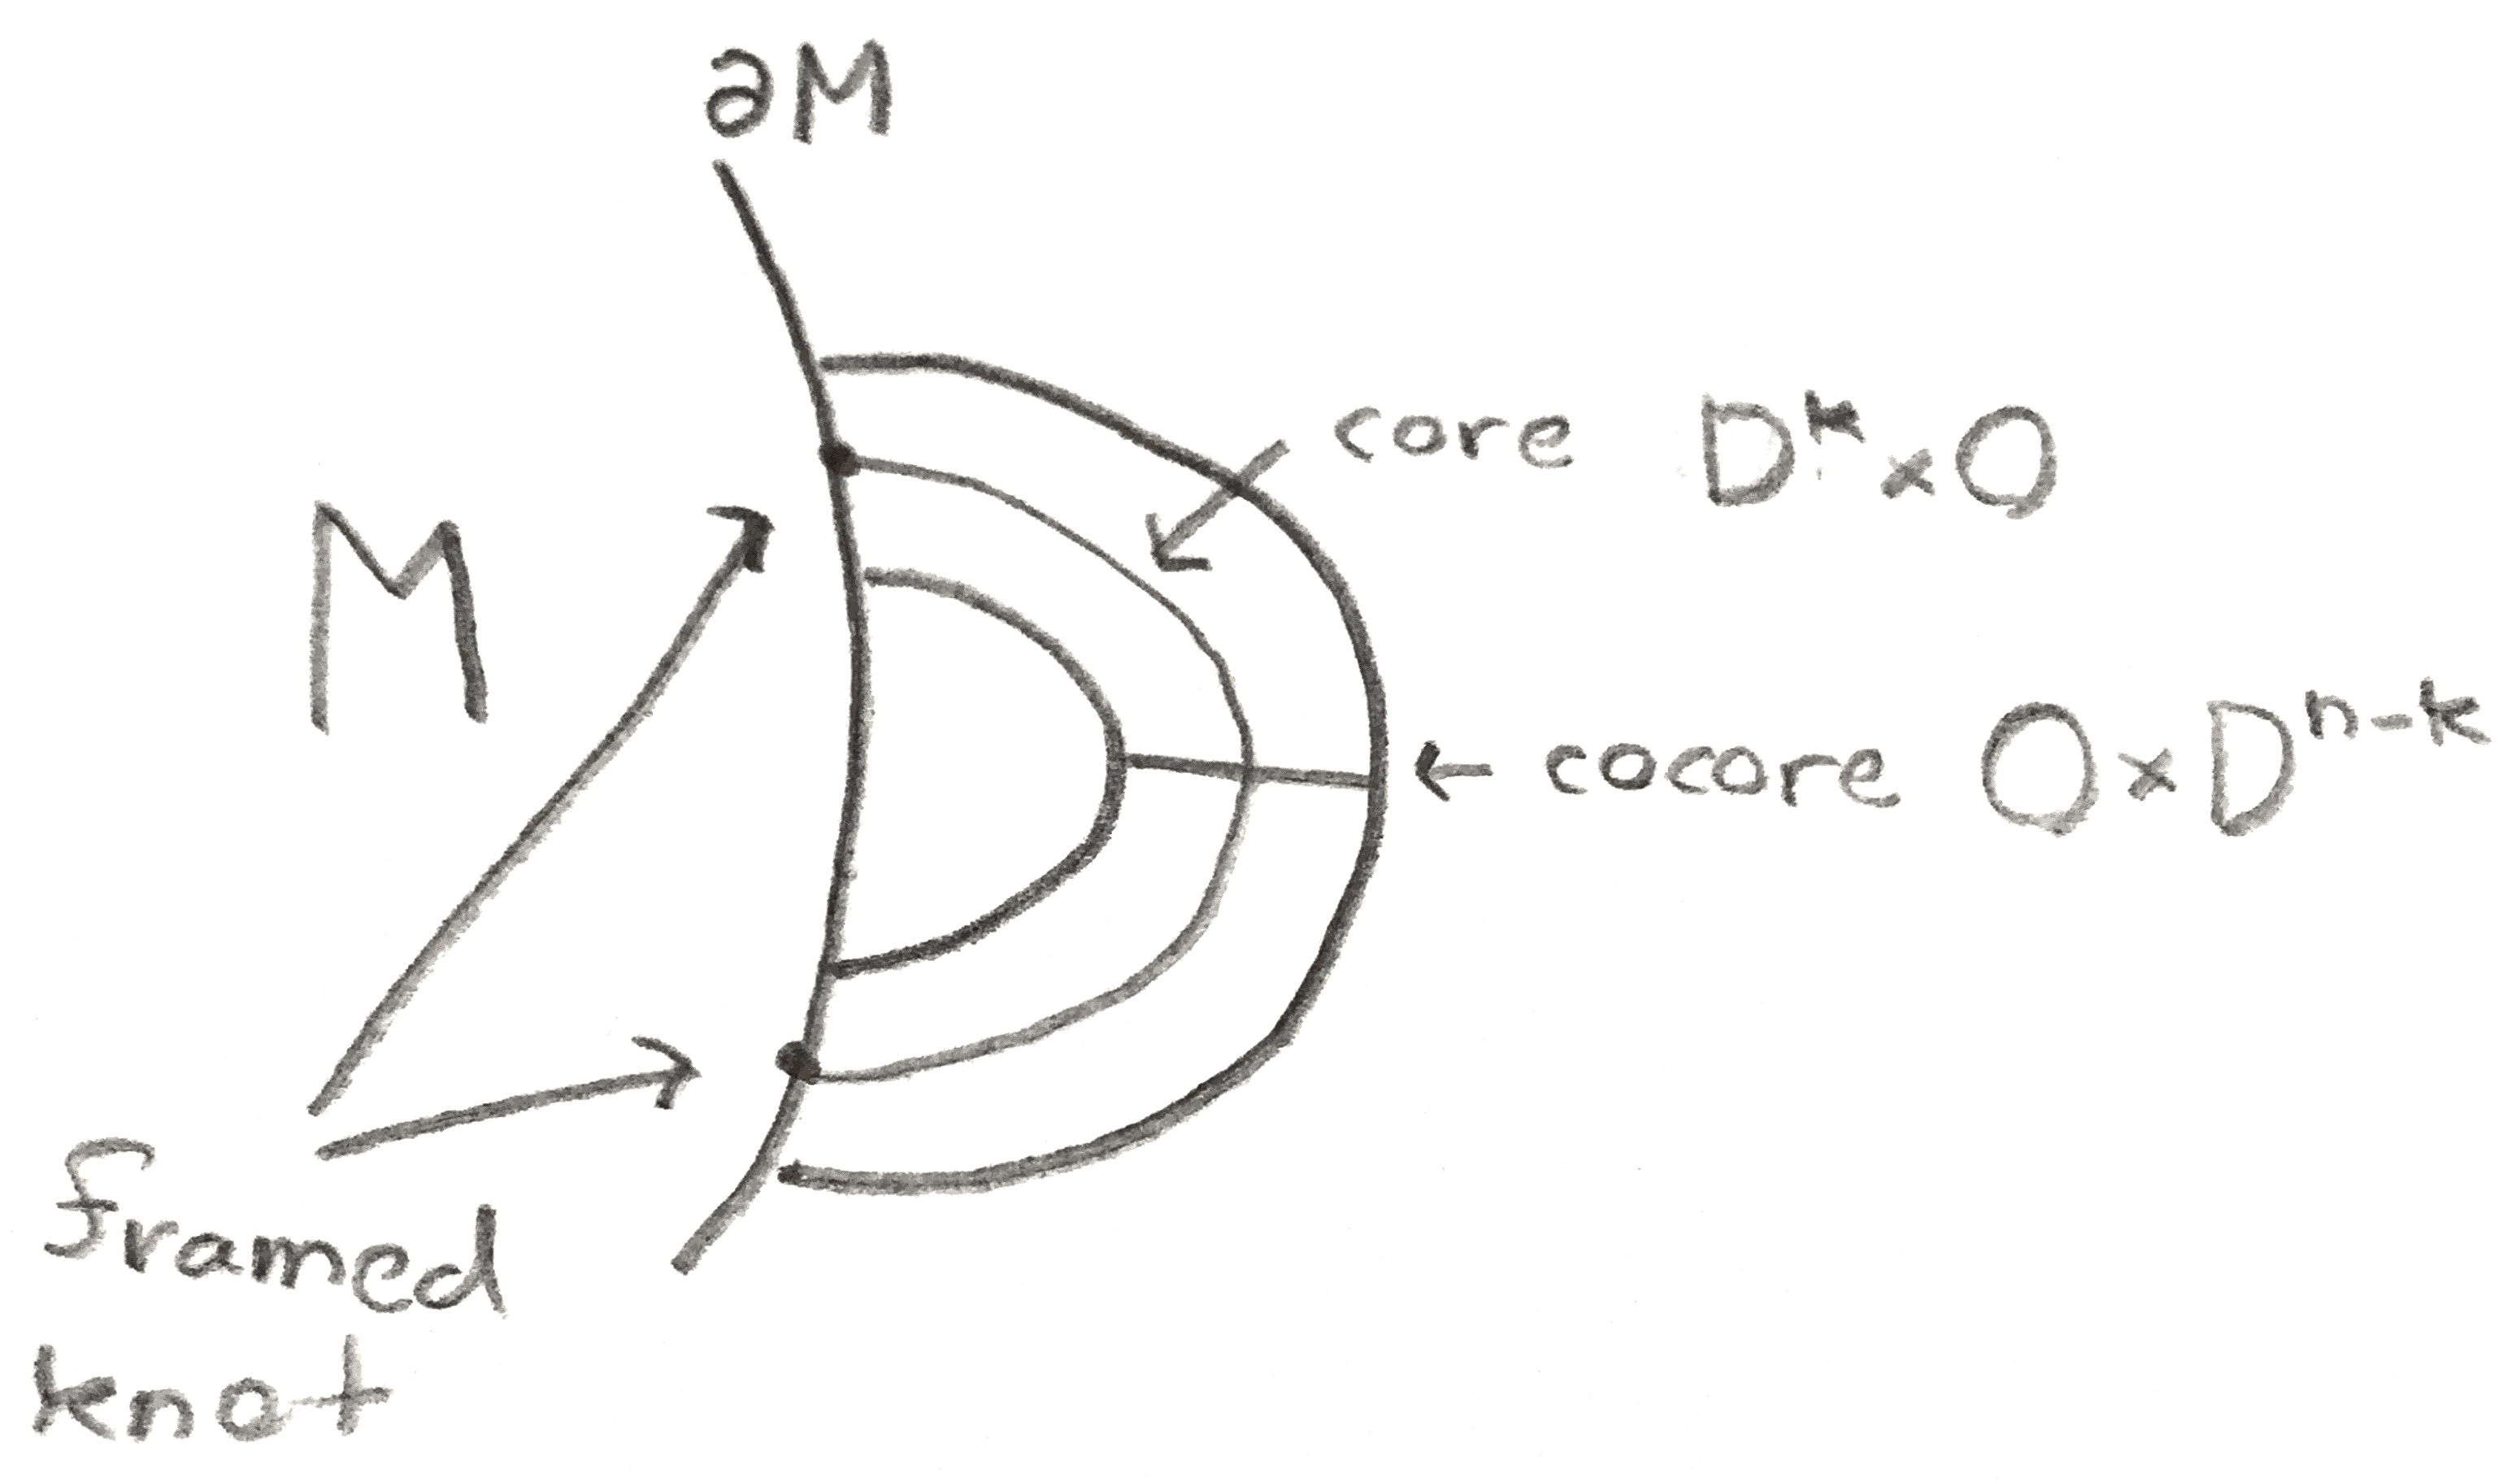 ∂M
core D^k×0
M
cocore 0×D^{n-k}
framed
knot